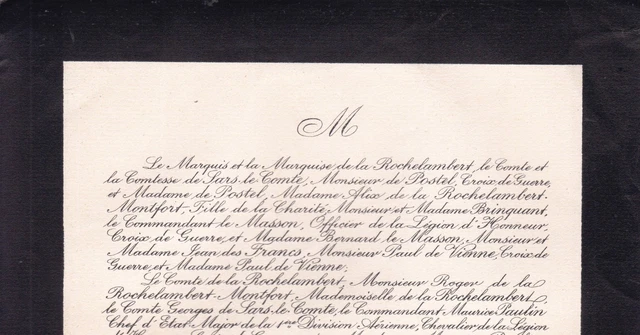 M
Le Marquis et la Marquise de la Rochelambert, le Comte et
la Comtesse de Sars-le-Comte, Monsieur de Postel, Croix de Guerre,
et Madame de Postel, Madame Alix de la Rochelambert-
Montfort, Fille de la Charité, Monsieur et Madame Brinquant,
le Commandant le Masson, Officier de la Légion d'Honneur,
Croix de Guerre, et Madame Bernard le Masson, Monsieur et
Madame Jean des Francs, Monsieur Paul de Vienne, Croix de
Guerre, et Madame Paul de Vienne;
Le Comte de la Rochelambert, Monsieur Roger de la
Rochelambert-Montfort, Mademoiselle de la Rochelambert,
le Comte Georges de Sars-le-Comte, le Commandant Maurice Paulin
Chef d'Etat-Major de la 1ère Division Aérienne, Chevalier de la Légion